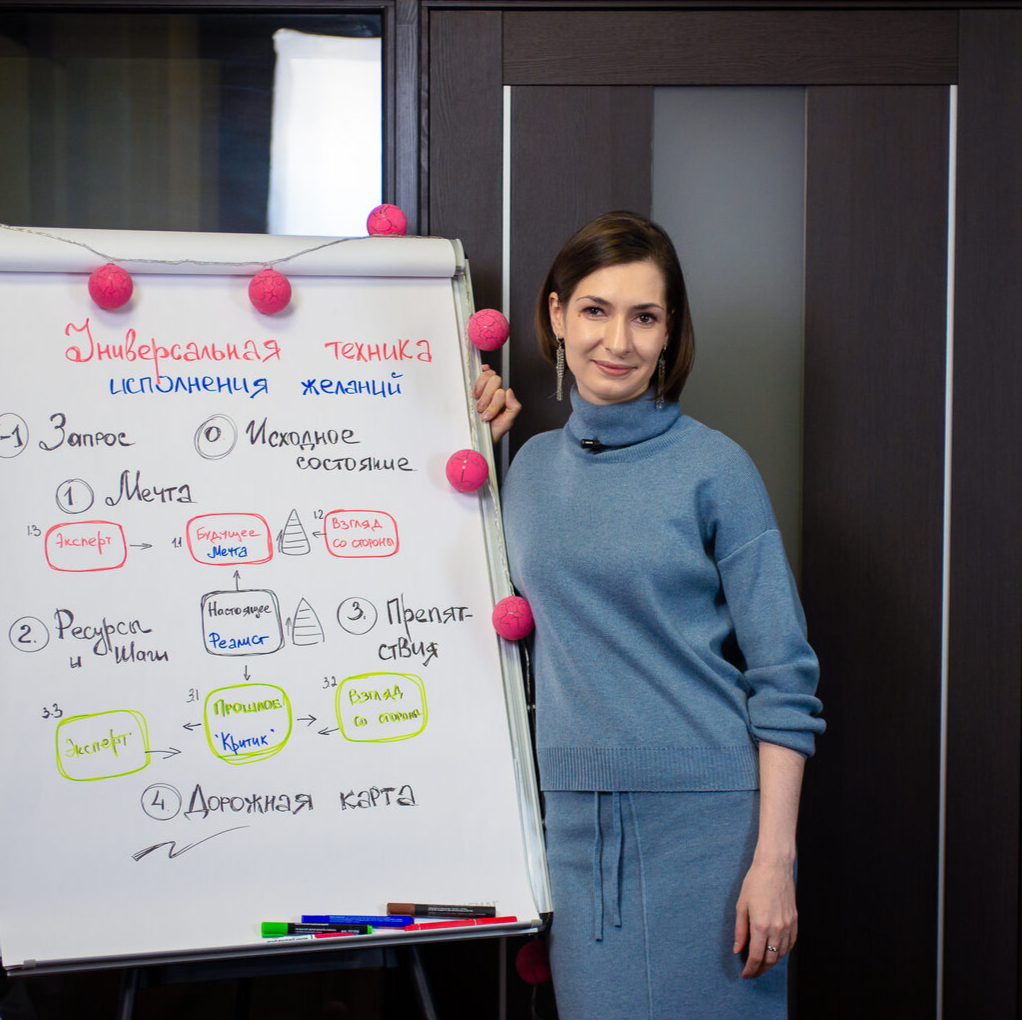 Универсальная техника
исполнения желаний
-1 Запрос
0 Исходное
состояние
1 Мечта
1.3 Эксперт
1.1 Будущее
Мечта
1.2 Взгляд
со стороны
Настоящее
Реалист
2. Ресурсы
и Шаги
3. Препят-
ствия
3.3 Эксперт
3.1 Прошлое
"Критик"
3.2 Взгляд
со стороны
4. Дорожная карта